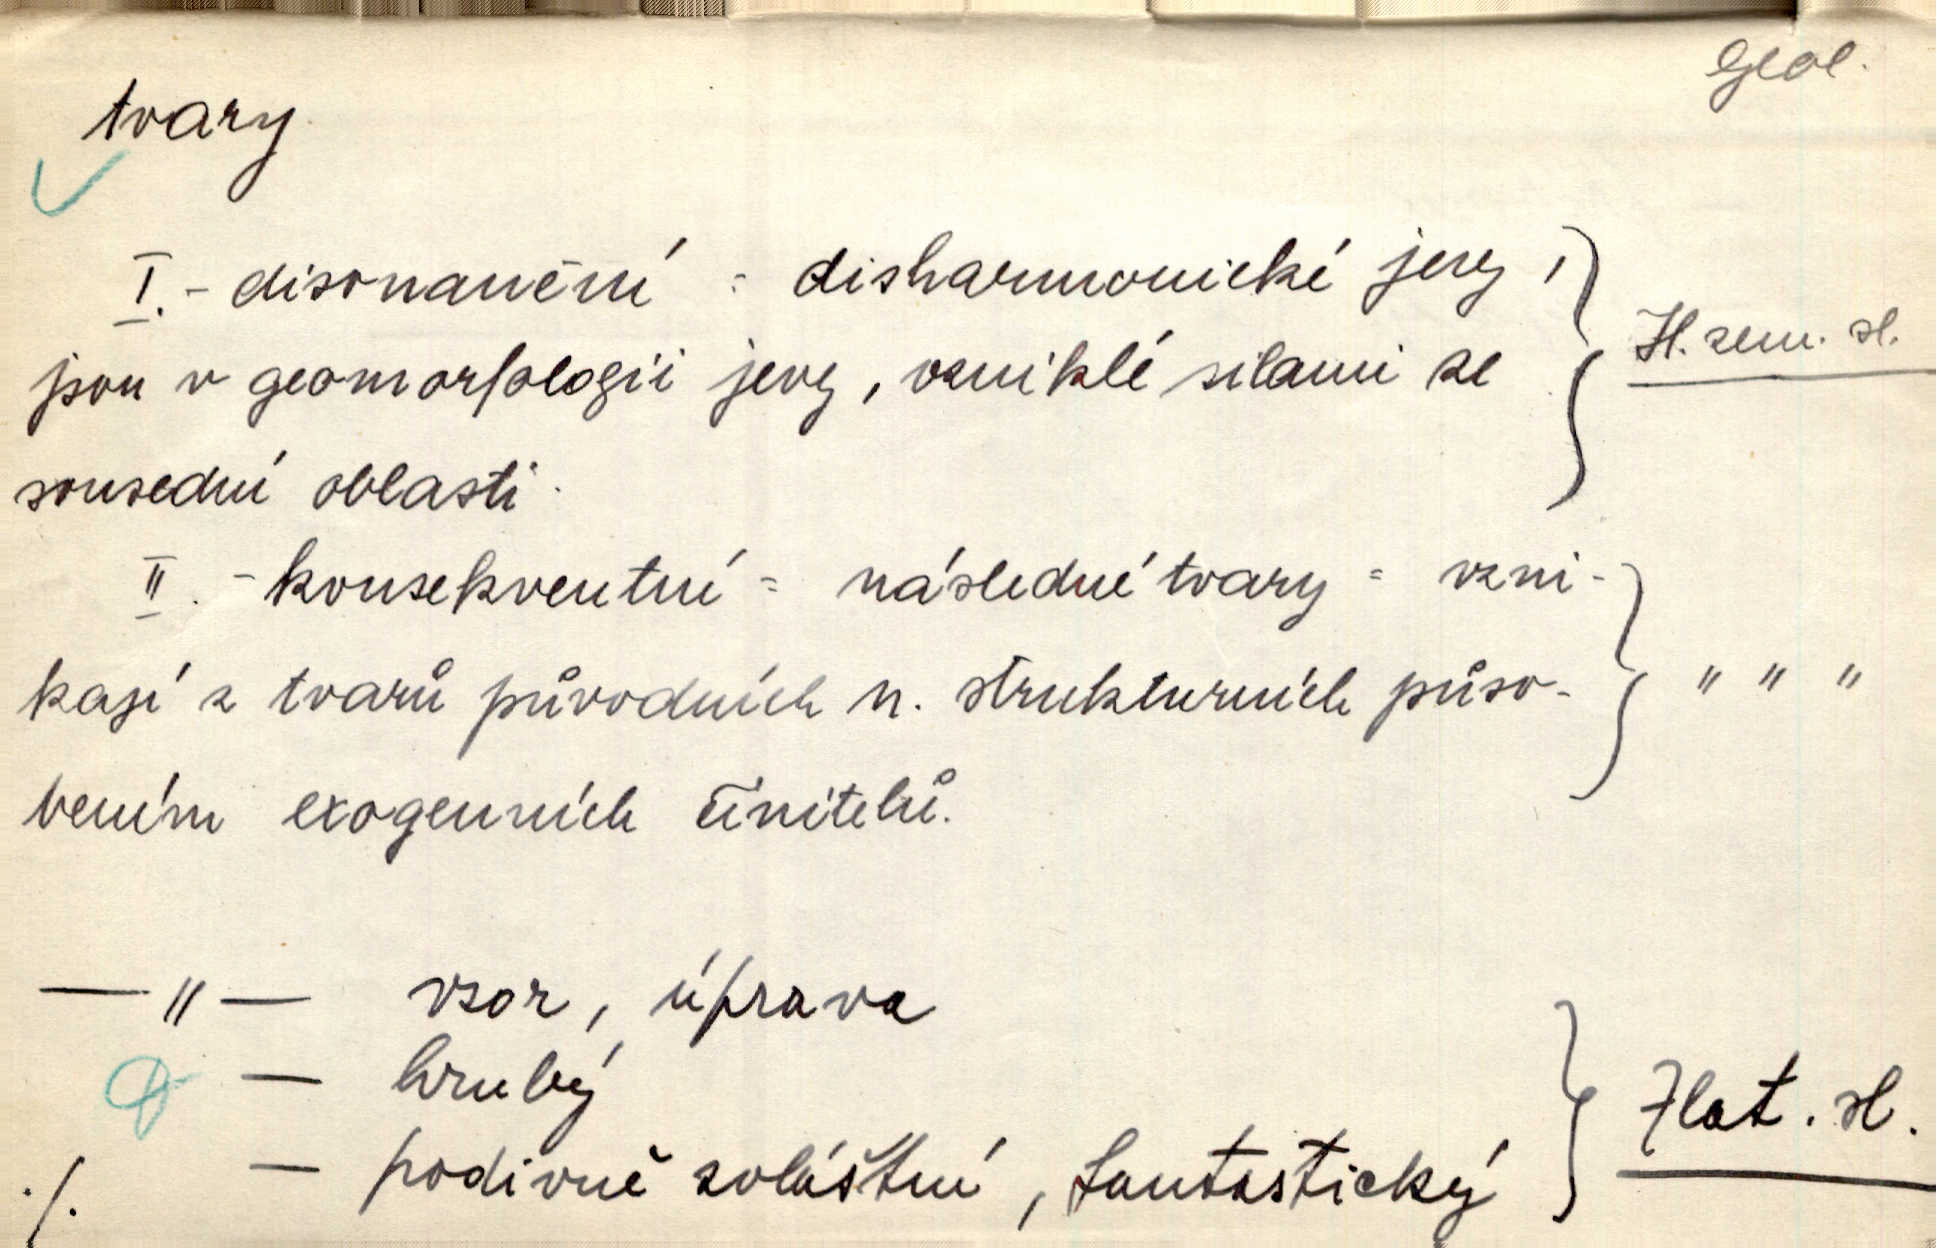 geol.
tvary
I. - disonanční = disharmonické jevy,
jsou v geomorfologii jevy, vzniklé silami ze
Hl. zem. sl.
sousední oblasti.
II. - konsekventní = následné tvary = vzni-
kají z tvarů původních n. strukturních půso- " " "
bením exogenních činitelů.
— " — vzor, úprava
— hrubý
Zlat. sl.
— podivně zvláštní, fantastický
./.